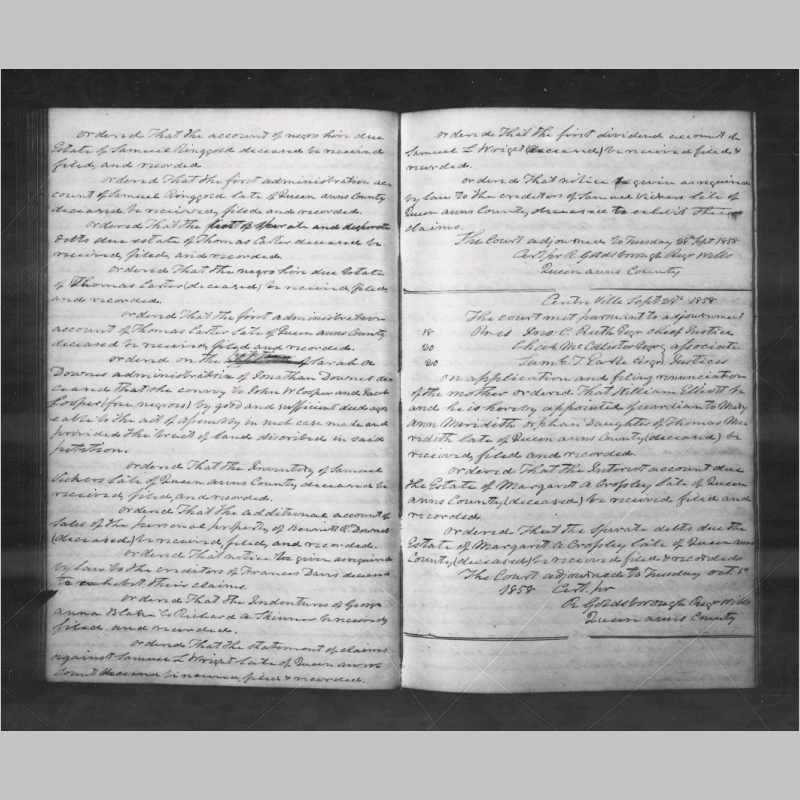 Ordered That the account of negro hire due
Estate of Samuel Ringgold deceased be received
filed, and recorded.
Ordered That the first administration ac
count of Samuel Ringgold late of Queen anns County
deceased be received, filed and recorded.
Ordered That the list of sperate and desperate
debts due estate of Thomas Carter deceased be
received, filed, and recorded.
Ordered That the negro hire due Estate
of Thomas Carter (deceased) be received filed
and recorded.
Ordered That the first administration
account of Thomas Carter late of Queen anns County
deceased be received, filed and recorded.
Ordered on the of Sarah A
Downes administratrix of Jonathan Downes de
ceased that she convey to John W Cooper and
Cooper (free negroes) by good and sufficient deed agre
eable to the act of assembly in such case made and
provided the tract of land discribed in said
petition.
Ordered That the Inventory of Samuel
Vickers late of Queen anns County deceased be
received, filed, and recorded.
Ordered That the additional account of
sales of the personal property of Bennett R Downes
(deceased) be received, filed, and recorded.
Ordered That notice be given as required
by law to the creditors of Frances Davis deceased
to exhibit their claims.
Ordered That the Indentures of Georg
anna Blake to Richard A Skinner be received
filed and recorded.
Ordered That the statement of claims
against Samuel L Wright late of Queen anns
County deceased be received, filed & recorded.
Ordered That the first dividend account of
Samuel L Wright (deceased) be received filed &
recorded.
Ordered That notice be given as required
by law to the creditors of Samuel Vickers late of
Queen anns County deceased to exhibit their
claims.
The Court adjourned to Tuesday 28th Sept 1858
Cert. pr R Goldsborough Regr Wills
Queen anns County
Centre Ville Sept 28th 1858
The court met pursuant to adjournment
18 Pres Jno. C. Ruth Esqr chief Justice
20 Cheek McCollister Esqr associate
20 Saml T Earle Esqr Justices
On application and filing renunciation
of the mother ordered That William Elliott be
and he is hereby appointed guardian to Mary
Ann Meridith orphan daughter of Thomas Me
ridith late of Queen anns County (deceased) be
received, filed and recorded.
Ordered That the Interest account due
the Estate of Margaret A Cropley late of Queen
anns County (deceased) be received filed and
recorded.
Ordered That the sperate debts due the
Estate of Margaret A Cropley late of Queen anns
County (deceased) be received filed & recorded
The Court adjourned to Tuesday Oct 5th
1858 Cert. pr
R Goldsborough Regr Wills
Queen anns County